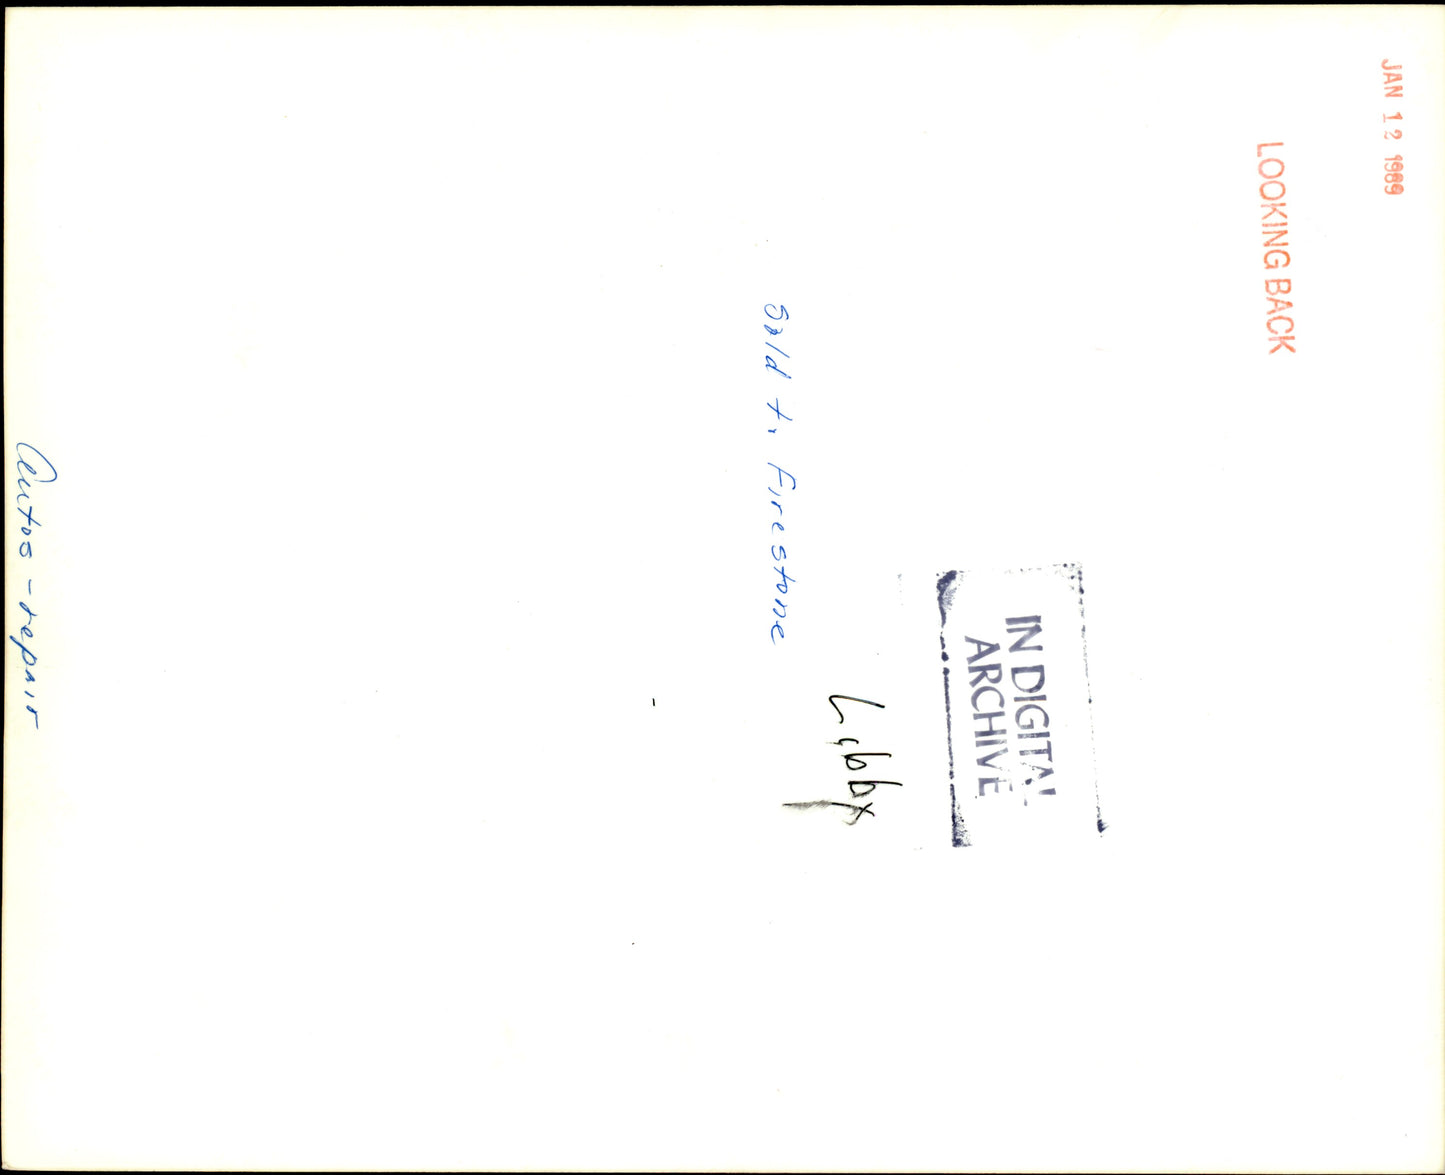 JAN 12 1989
LOOKING BACK
IN DIGITAL
ARCHIVE
Libby
Sold to Firestone
Autos - repair